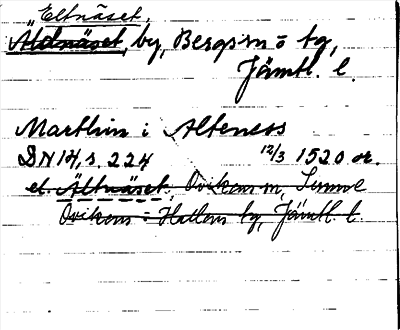 "Eltnäset,
Altnäset, by, Bergs sn o tg,
Jämtl. l.
Marthin i Alteness
DN 14, s. 224 12/3 1520 or.
el. Ältnäset, Ovikens sn,
Ovikens o Hallens tg, Jämtl. l.